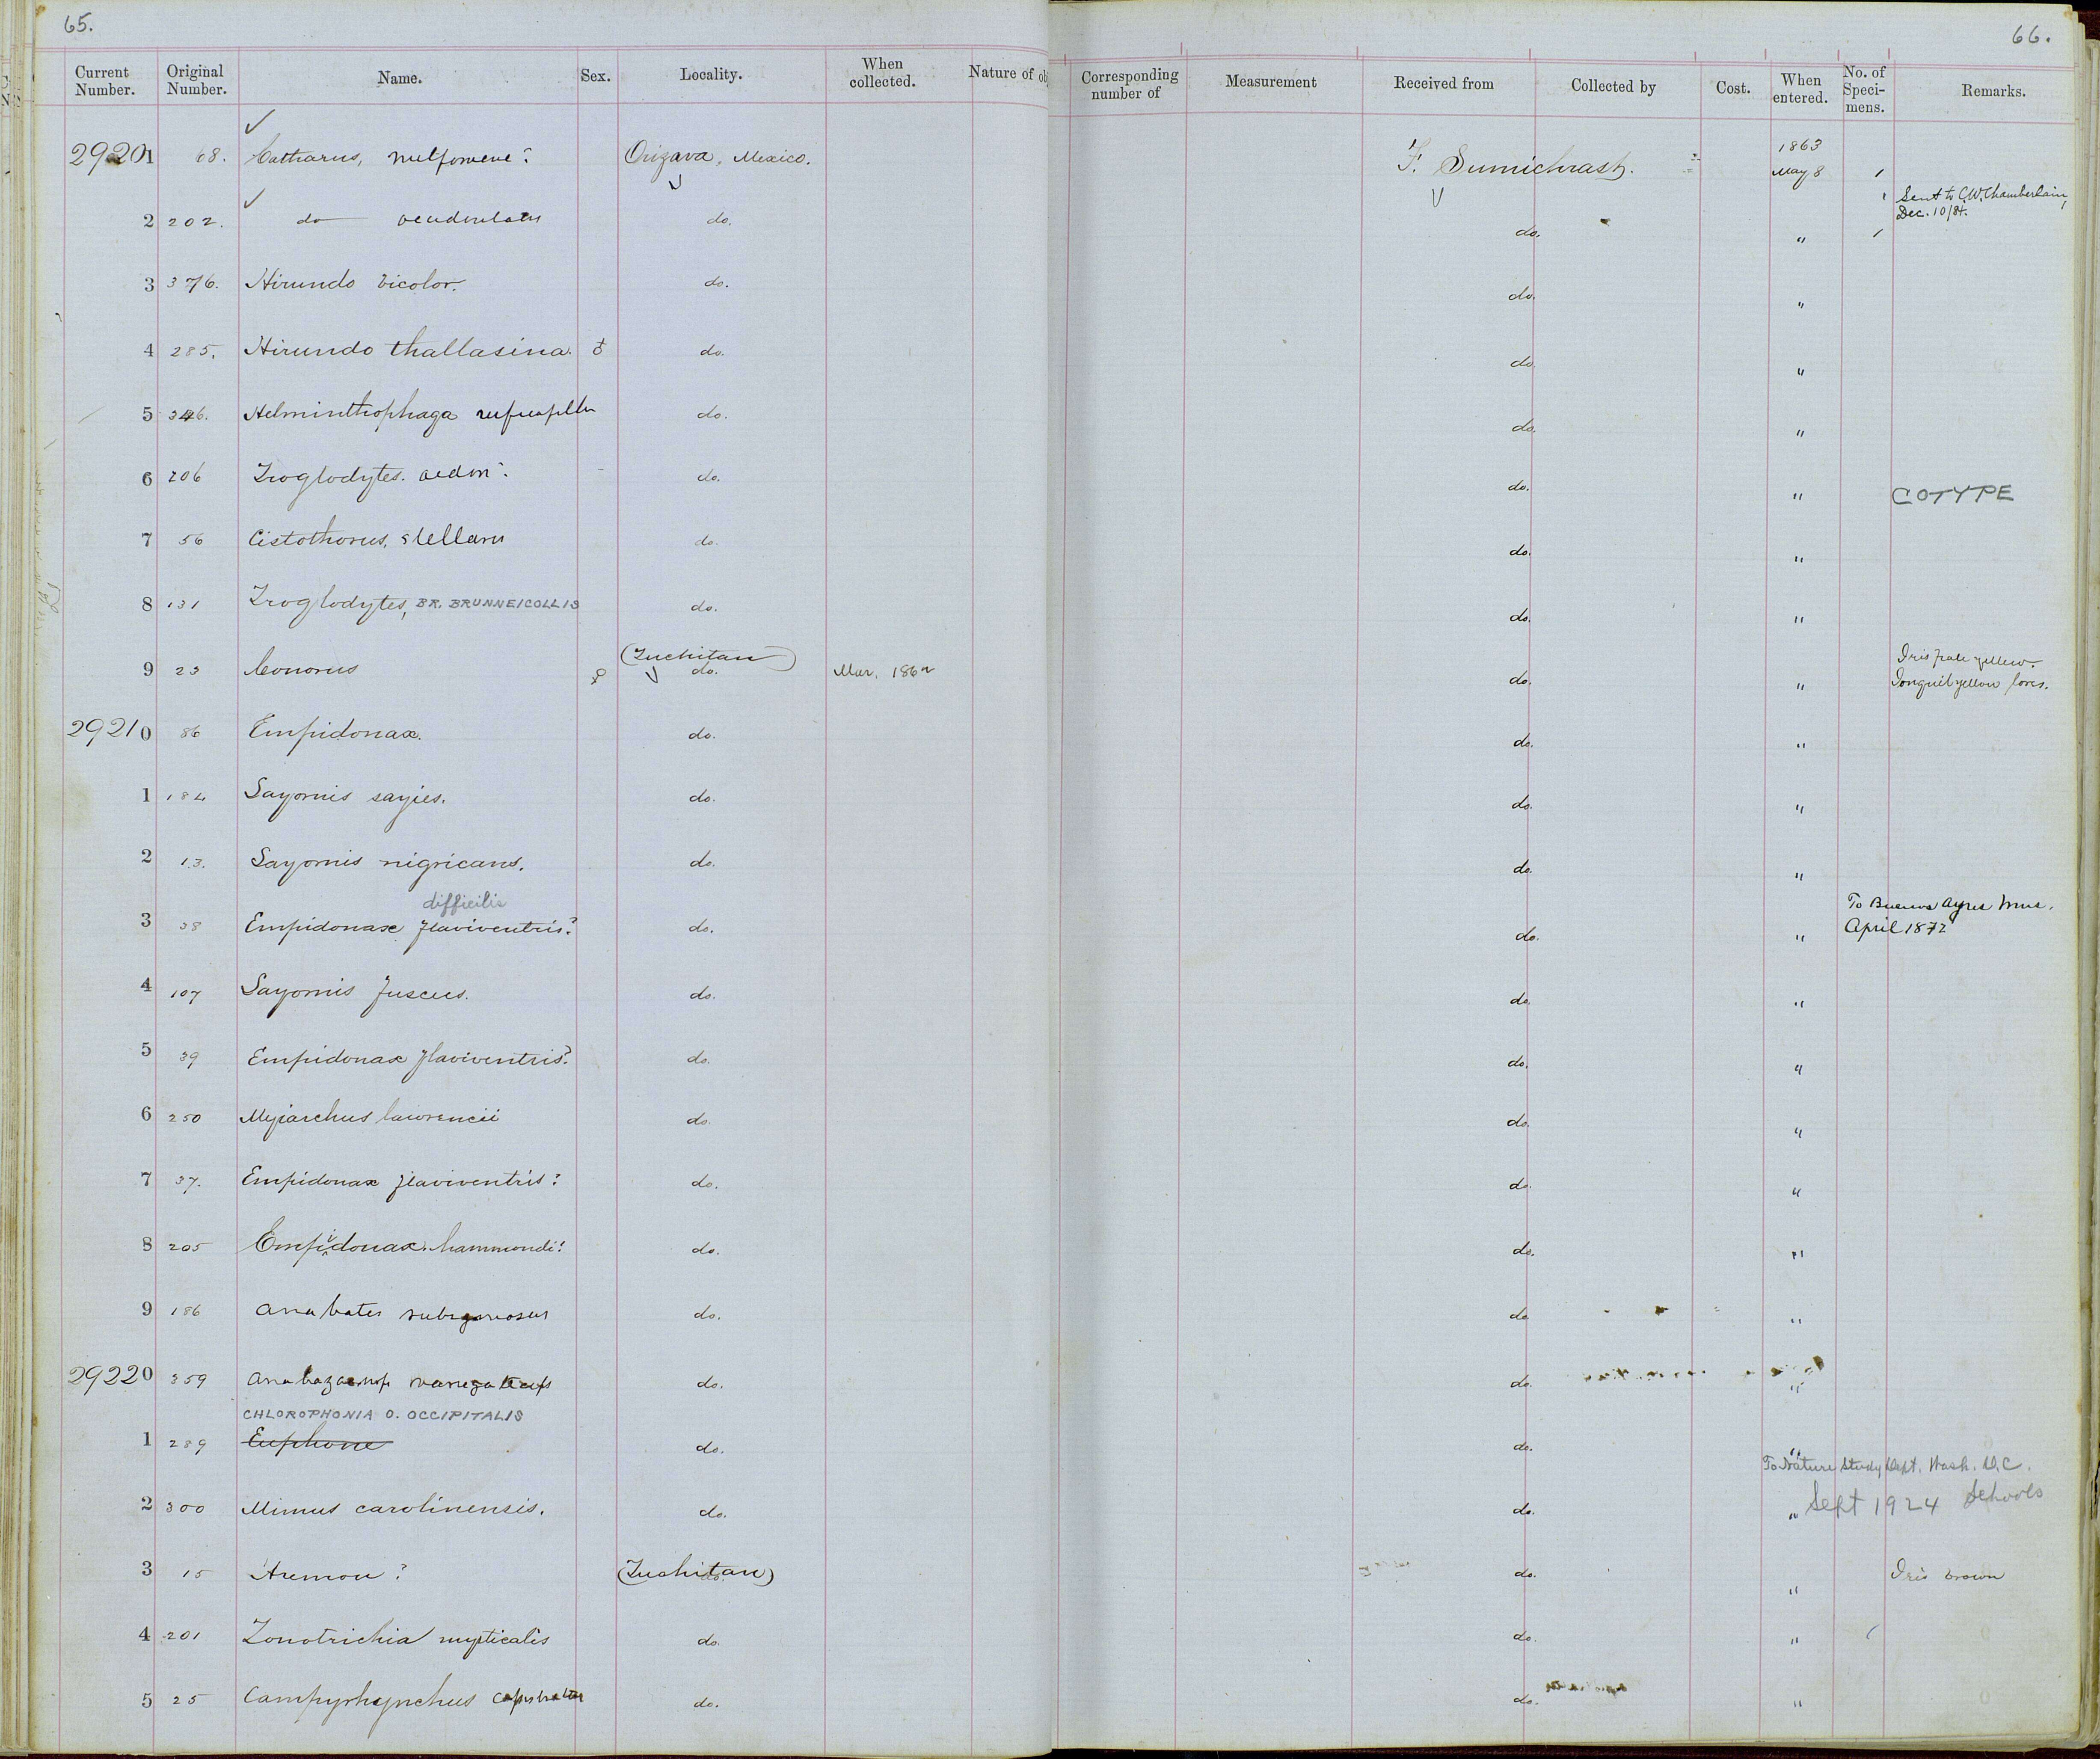 65.
66.
Current Number. Original Number. Name. Sex. Locality. When collected. Nature of ob Corresponding number of Measurement Received from Collected by Cost. When entered. No. of Speci-mens. Remarks.
29201 68. Catharus, melpomene? Orizava, Mexico. F. Sumichrast. 1863 May 8 1
2 202. do do. do. " 1 Sent to C.W. Chamberlain, Dec. 10/84.
3 376. Hirundo bicolor. do. do. "
4 285. Hirundo thallasina. ♂ do. do. "
5 346. Helminthophaga ruficapilla do. do. "
6 206 Troglodytes. aedon? do. do. " COTYPE
7 56 Cistothorus, stellaris do. do. "
8 131 Troglodytes, BR. BRUNNEICOLLIS do. do. "
9 23 Conorus ♀ (Juchitan) do. Mar. 1862 do. " Iris pale yellow. Jonquil yellow lores.
29210 86 Empidonax. do. do. "
1 184 Sayornis sayies. do. do. "
2 13. Sayornis nigricans. do. do. "
difficilis
3 38 Empidonax flaviventris? do. do. " To Buenos Ayres Mus. April 1872
4 107 Sayornis fuscus. do. do. "
5 39 Empidonax flaviventris? do. do. "
6 250 Myiarchus lawrencii do. do. "
7 37. Empidonax flaviventris? do. do. "
8 205 Empidonax. hammondi? do. do. "
9 186 Anabates do. do. "
29220 359 do. do. "
CHLOROPHONIA O. OCCIPITALIS
1 289 Euphone do. do. "
To Nature Study Dept. Wash. D.C.
Sept 1924 Schools
2 300 Mimus carolinensis. do. do. "
3 15 Aremon? (Juchitan) do. do. " Iris brown
4 201 Zonotrichia mysticalis do. do. " 1
5 25 Campyrhynchus capistratus do. do. "